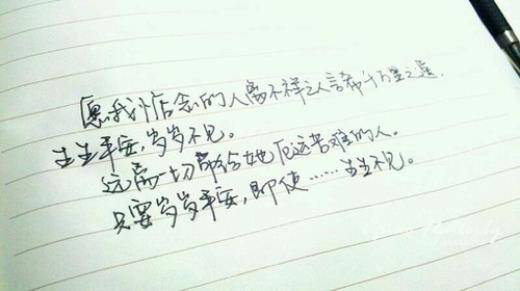 愿我心念的人离不祥之人言希千万里之遥,
生生平安,岁岁不见。
远离一切带给她厄运苦难的人。
只要岁岁平安,即使……生生不见。